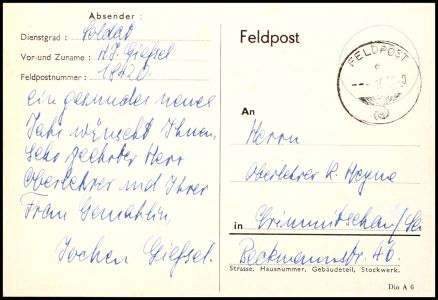 Absender :
Dienstgrad : Soldat
Vor-und Zuname : H.J. Gießel
Feldpostnummer : 18420.
Ein gesundes neues
Jahr wünscht Ihnen,
Sehr geehrter Herr
Oberlehrer und Ihrer
Frau Gemahlin,
Jochen Gießel.
Feldpost
FELDPOST
An
Herrn
Oberlehrer K. Heyne
in Crimmitschau/Sa
Beckmannstr. 
Strasse, Hausnummer, Gebäudeteil, Stockwerk.
Din A 6